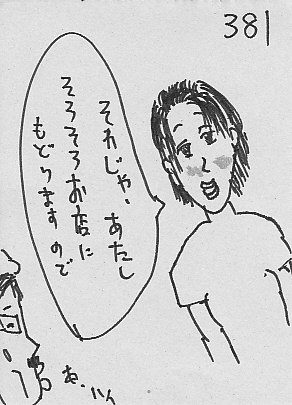 381
それじゃ、あたし
そろそろお店に
もどりますので
あ、ハイ